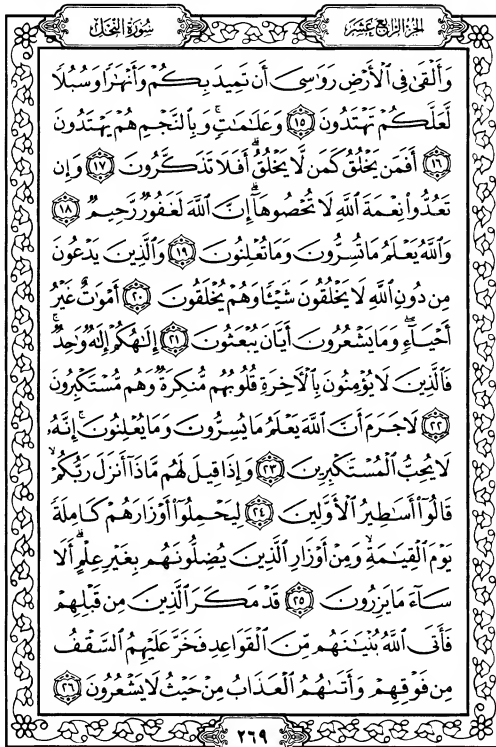 سُورَةُ النَّحْلِ
الجُزْءُ الرَّابِعَ عَشَرَ
وَأَلْقَىٰ فِي ٱلْأَرْضِ رَوَٰسِيَ أَن تَمِيدَ بِكُمْ وَأَنْهَٰرًا وَسُبُلًا
لَّعَلَّكُمْ تَهْتَدُونَ ۝١٥ وَعَلَٰمَٰتٍۚ وَبِٱلنَّجْمِ هُمْ يَهْتَدُونَ
۝١٦ أَفَمَن يَخْلُقُ كَمَن لَّا يَخْلُقُۗ أَفَلَا تَذَكَّرُونَ ۝١٧ وَإِن
تَعُدُّوا۟ نِعْمَةَ ٱللَّهِ لَا تُحْصُوهَآۗ إِنَّ ٱللَّهَ لَغَفُورٌ رَّحِيمٌ ۝١٨
وَٱللَّهُ يَعْلَمُ مَا تُسِرُّونَ وَمَا تُعْلِنُونَ ۝١٩ وَٱلَّذِينَ يَدْعُونَ
مِن دُونِ ٱللَّهِ لَا يَخْلُقُونَ شَيْـًٔا وَهُمْ يُخْلَقُونَ ۝٢٠ أَمْوَٰتٌ غَيْرُ
أَحْيَآءٍۖ وَمَا يَشْعُرُونَ أَيَّانَ يُبْعَثُونَ ۝٢١ إِلَٰهُكُمْ إِلَٰهٌ وَٰحِدٌۚ
فَٱلَّذِينَ لَا يُؤْمِنُونَ بِٱلْأَخِرَةِ قُلُوبُهُم مُّنكِرَةٌ وَهُم مُّسْتَكْبِرُونَ
۝٢٢ لَا جَرَمَ أَنَّ ٱللَّهَ يَعْلَمُ مَا يُسِرُّونَ وَمَا يُعْلِنُونَۚ إِنَّهُۥ
لَا يُحِبُّ ٱلْمُسْتَكْبِرِينَ ۝٢٣ وَإِذَا قِيلَ لَهُم مَّاذَآ أَنزَلَ رَبُّكُمْۙ
قَالُوٓا۟ أَسَٰطِيرُ ٱلْأَوَّلِينَ ۝٢٤ لِيَحْمِلُوٓا۟ أَوْزَارَهُمْ كَامِلَةً
يَوْمَ ٱلْقِيَٰمَةِۙ وَمِنْ أَوْزَارِ ٱلَّذِينَ يُضِلُّونَهُم بِغَيْرِ عِلْمٍۗ أَلَا
سَآءَ مَا يَزِرُونَ ۝٢٥ قَدْ مَكَرَ ٱلَّذِينَ مِن قَبْلِهِمْ
فَأَتَى ٱللَّهُ بُنْيَٰنَهُم مِّنَ ٱلْقَوَاعِدِ فَخَرَّ عَلَيْهِمُ ٱلسَّقْفُ
مِن فَوْقِهِمْ وَأَتَىٰهُمُ ٱلْعَذَابُ مِنْ حَيْثُ لَا يَشْعُرُونَ ۝٢٦
٢٦٩